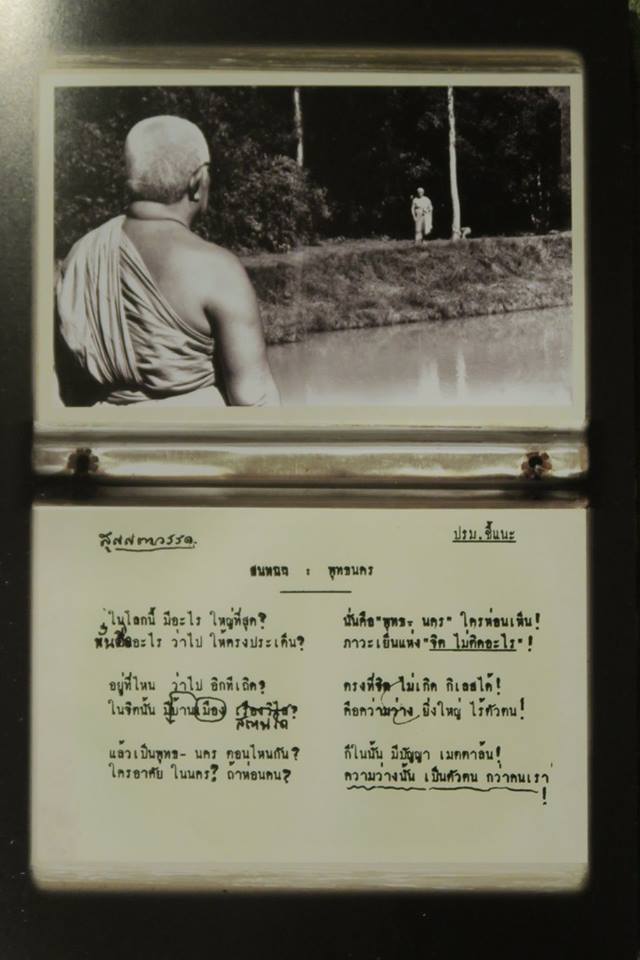 สุสสตวรรค.
ปรม.ชี้แนะ
สนทฉฤ : พุทธนคร
ในโลกนี้ มีอะไร ใหญ่ที่สุด?
นั่นคือ"พุทธ- นคร" ใครห่อนเห็น!
อะไร ว่าไป ให้ตรงประเด็น?
ภาวะเย็นแห่ง"จิต ไม่คิดอะไร"!
อยู่ที่ไหน ว่าไป อีกทีเถิด?
ตรงที่จิต ไม่เกิด กิเลสได้!
ในจิตนั้น มีบ้านเมือง
คือความว่าง ยิ่งใหญ่ ไร้ตัวตน!
แล้วเป็นพุทธ- นคร ตอนไหนกัน?
ก็ในนั้น มีปัญญา เมตตาล้น!
ใครอาศัย ในนคร? ถ้าห่อนคน?
ความว่างนั้น เป็นตัวตน กว่าคนเรา!